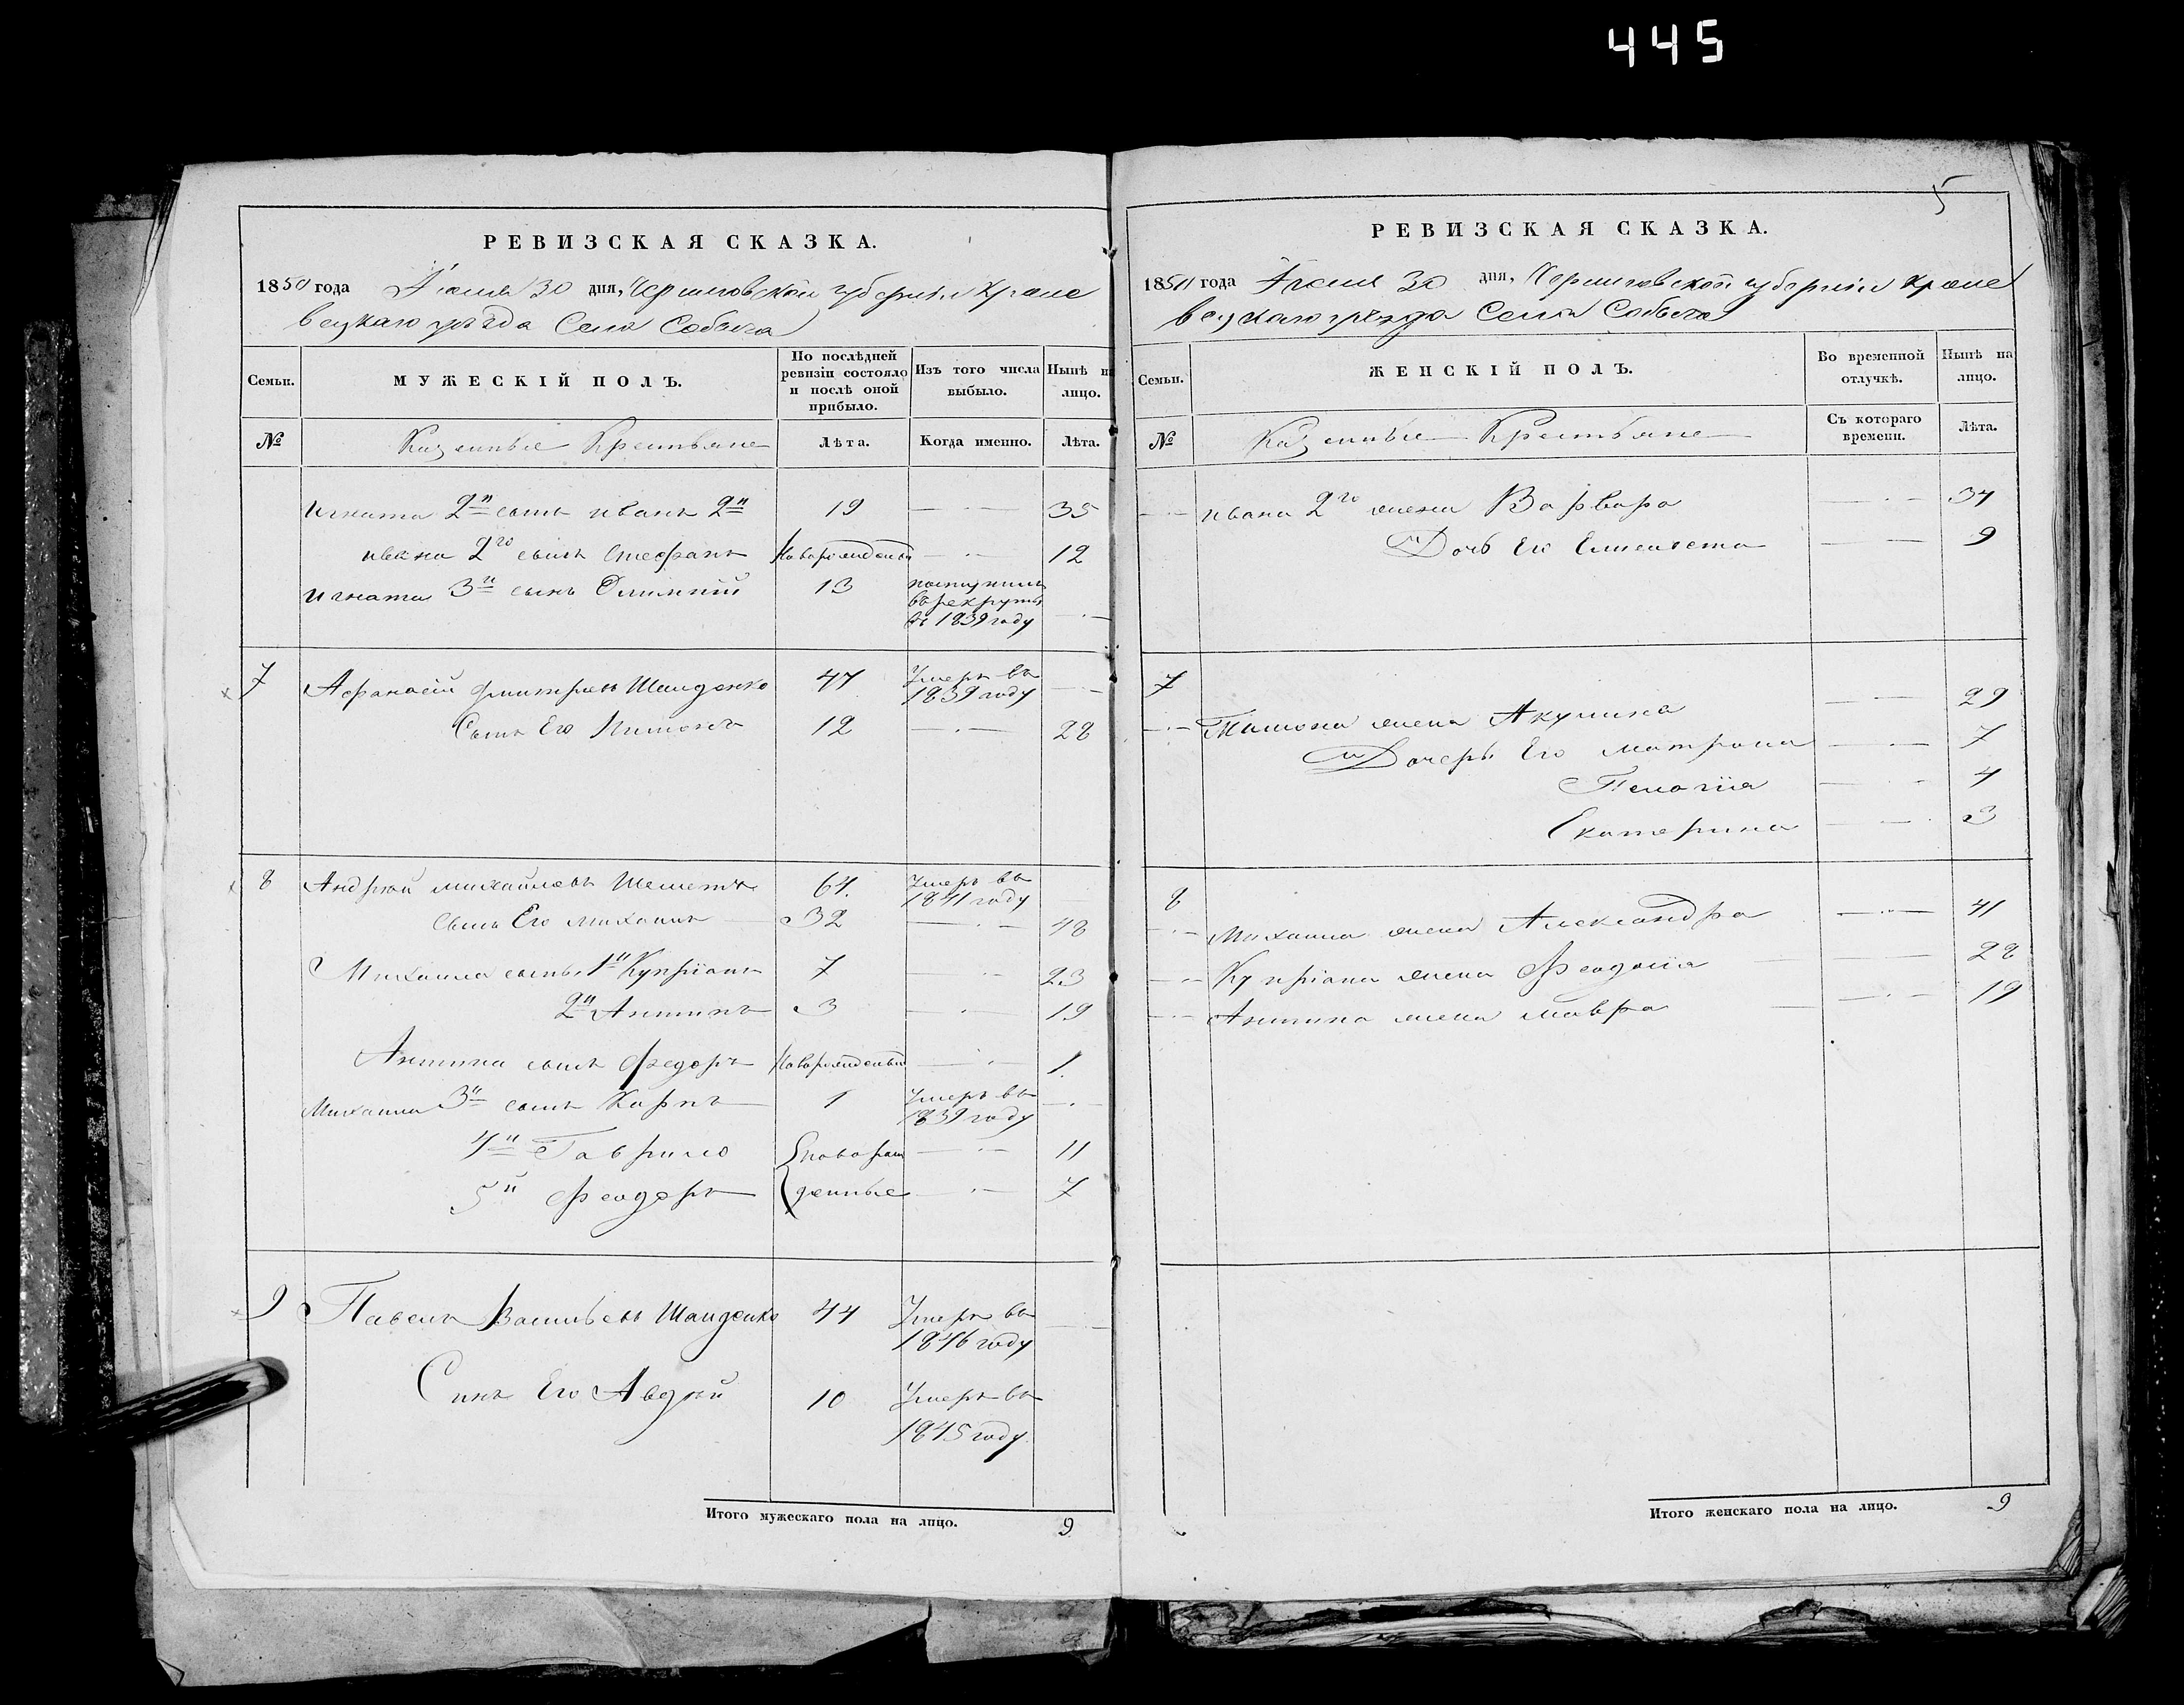 445
РЕВИЗСКАЯ СКАЗКА.
1850 года Іюня 30 дня, Черниговской губерніи Кроле
вецкаго уѣзда Села Собыча
Семьи.
МУЖЕСКІЙ ПОЛЪ.
По послѣдней ревизіи состояло и послѣ оной прибыло.
Изъ того числа выбыло.
Нынѣ на лицо.
№ Казенные Крестьяне Лѣта. Когда именно. Лѣта.
Игната 2й сынъ иванъ 2й 19 35
ивана 2го сынъ Стефанъ Новорожденый 12
Игната 3й сынъ 13 поступилъ
въ рекруты
въ 1839 году
7 Афанасій Дмитріевъ Шанденко 47 Умеръ въ
1839 году
Сынъ Его Тимохъ 12 28
8 Андрей михайловъ Шеметъ 64. Умеръ въ
1841 году
сынъ Его михаилъ 32 48
Михаила сынъ 1й Купріянъ 7 23
2й Антипъ 3 19
Антипа сынъ Федоръ Новорожденый 1.
Михаила 3й сынъ Карпъ 1 Умеръ въ
1839 году
4й Гаврило новорож 11
5й Феодоръ денные 7
9 Павелъ Васильевъ Шанденко 44 Умеръ въ
1846 году
Синъ Его Авдѣй 10 Умеръ въ
1845 году.
Итого мужескаго пола на лицо. 9
5
РЕВИЗСКАЯ СКАЗКА.
1850 года Іюня 30 дня, Черниговской губерніи Кроле
вецкаго уѣзда Села Собыча
Семьи.
ЖЕНСКІЙ ПОЛЪ.
Во временной отлучкѣ.
Нынѣ на лицо.
№ Казенные Крестьяне Съ котораго времени. Лѣта.
ивана 2го жена Варвара 34
Дочь Его Елисавета 9
7
Тимоха жена Акулина 29
Дочери Его матрона 7
Пелагія 4
Екатерина 3
8
Михаила жена Александра 41
Купріана жена Феодосія 28
Антипа жена мавра 19
Итого женскаго пола на лицо. 9